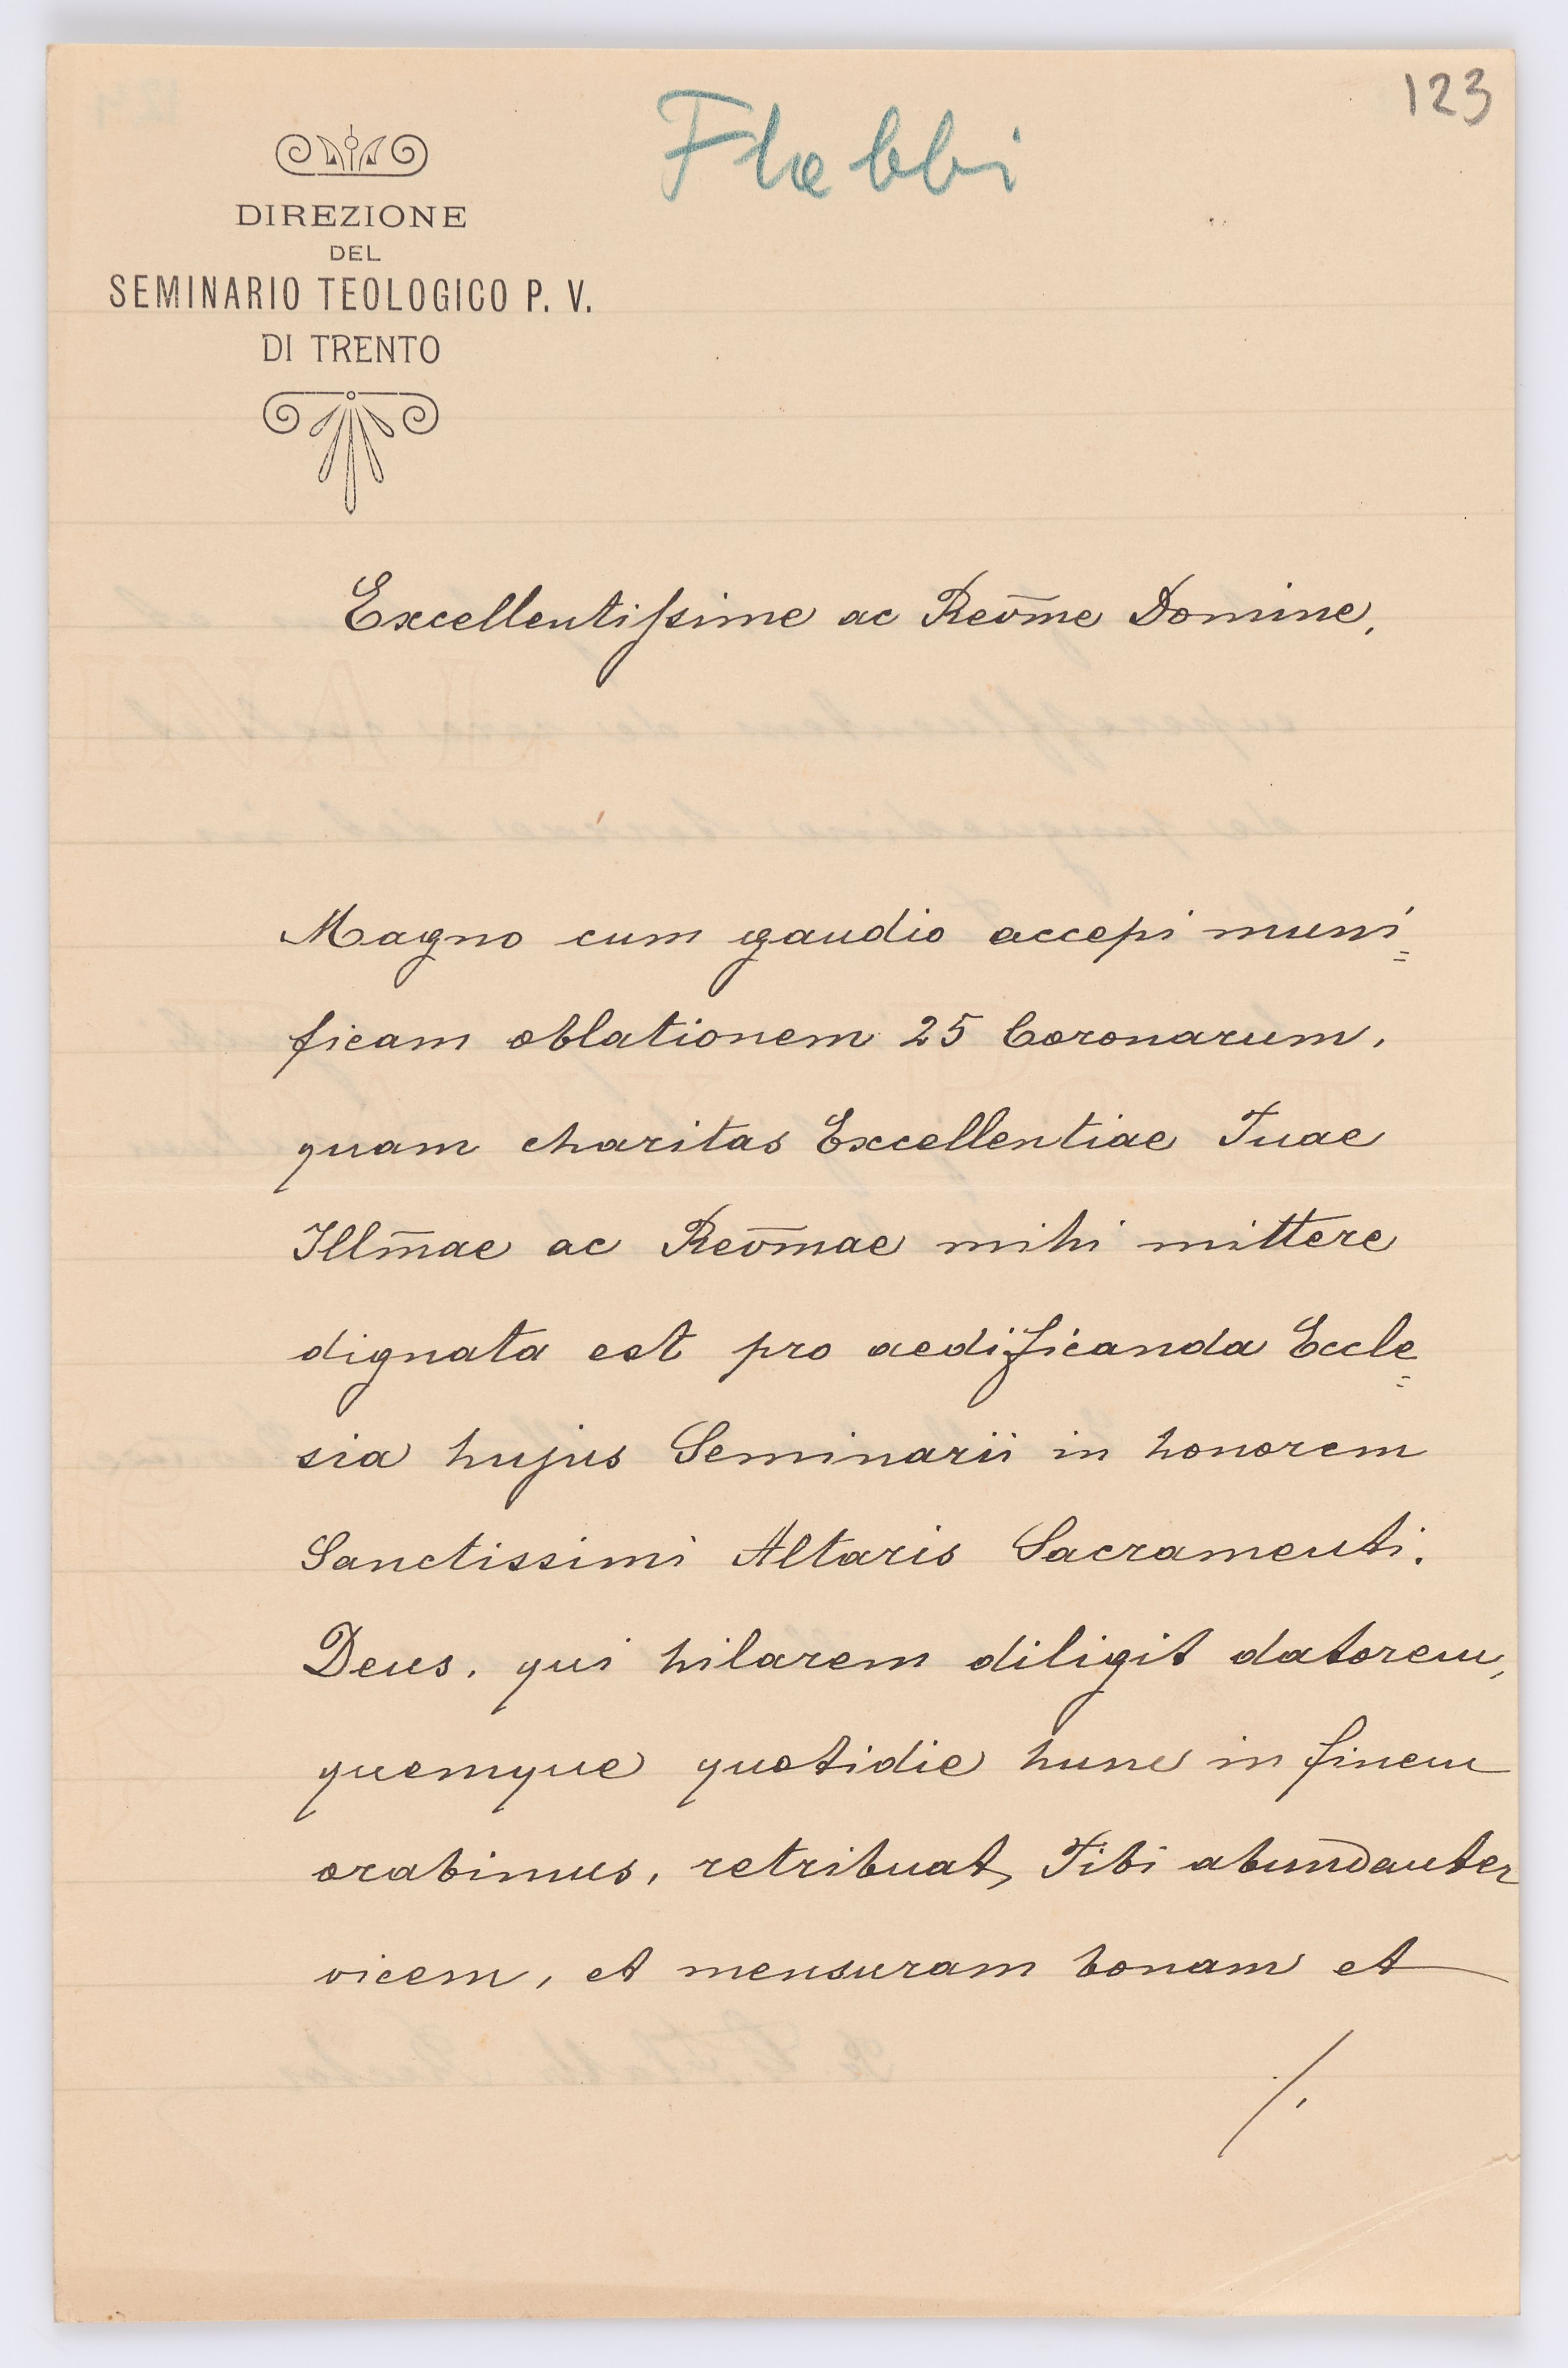 123
Flabbi
DIREZIONE
DEL
SEMINARIO TEOLOGICO P. V.
DI TRENTO
Excellentiſsime ac Revm̄e Domine,
Magno cum gaudio accepi muni=
ficam oblationem 25 Coronarum,
quam charitas Excellentiae Tuae
Illm̄ae ac Revm̄ae mihi mittere
dignata est pro aedificanda Eccle=
sia hujus Seminarii in honorem
Sanctissimi Altaris Sacramenti.
Deus, qui hilarem diligit datorem,
quemque quotidie hunc in finem
orabimus, retribuat Tibi abundanter
vicem, et mensuram bonam et
/.